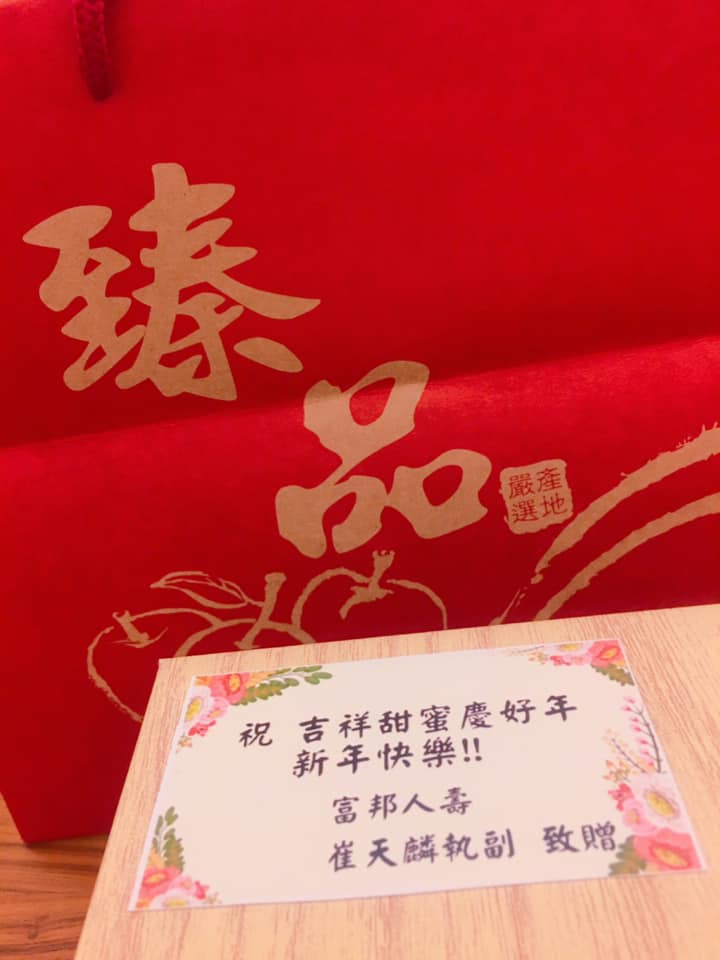 臻
品
產地
嚴選
祝 吉祥甜蜜慶好年
新年快樂!!
富邦人壽
崔天麟執副 致贈